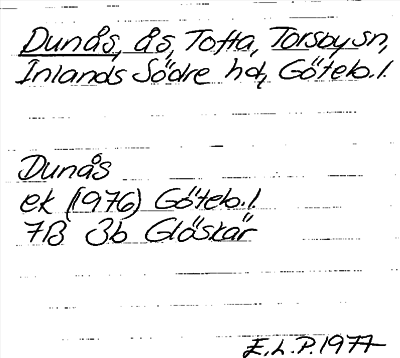 Dunås, ås, Tofta, Torsby sn,
Inlands Södre hd, Göteb.l.
Dunås
ek (1976) Göteb.l.
7B 3b Glöskär
E.L.P. 1977